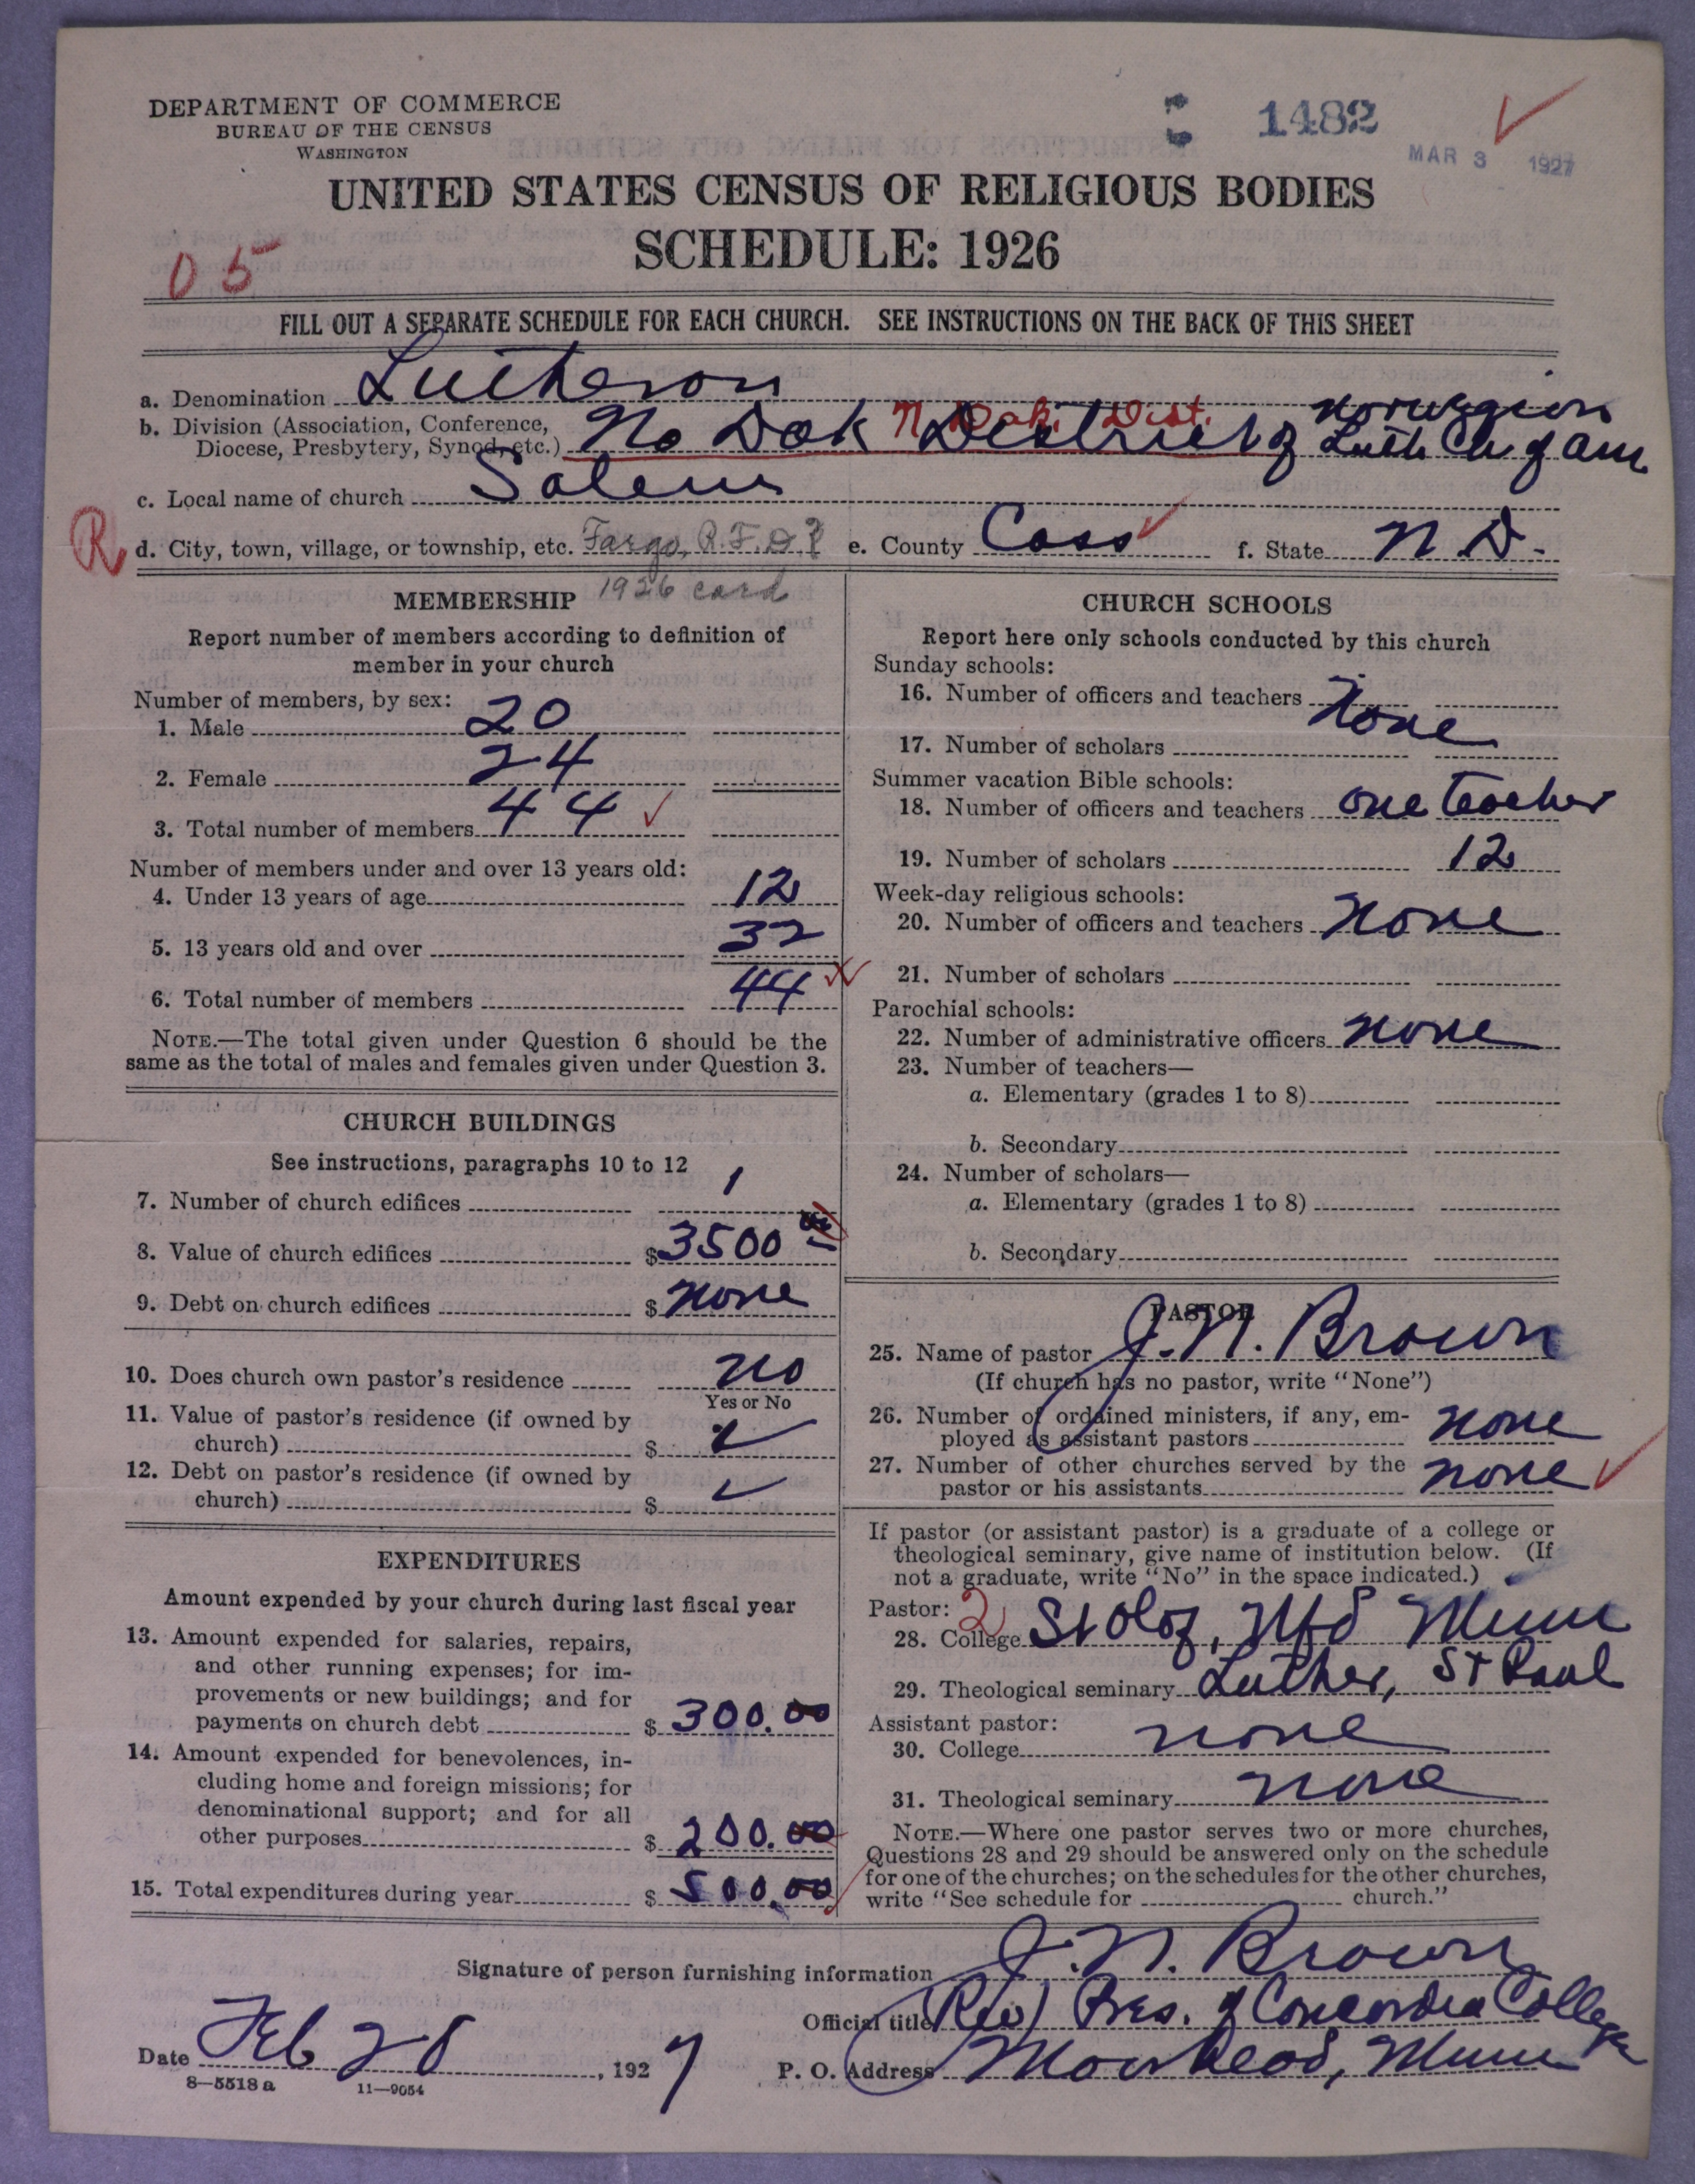 DEPARTMENT OF COMMERCE
BUREAU OF THE CENSUS
WASHINGTON
1482
MAR 3 1927
UNITED STATES CENSUS OF RELIGIOUS BODIES
SCHEDULE: 1926
05
FILL OUT A SEPARATE SCHEDULE FOR EACH CHURCH. SEE INSTRUCTIONS ON THE BACK OF THIS SHEET
a. Denomination Lutheran
b. Division (Association, Conference, Diocese, Presbytery, Synod, etc.) No Dak District of Norwegian Luth Ch of Am
N. Dak. Dist.
c. Local name of church Salem
R
d. City, town, village, or township, etc. Fargo, R.F.D.? e. County Cass f. State N D.
1926 card
MEMBERSHIP
Report number of members according to definition of
member in your church
Number of members, by sex:
1. Male 20
2. Female 24
3. Total number of members 44
Number of members under and over 13 years old:
4. Under 13 years of age 12
5. 13 years old and over 32
6. Total number of members 44
NOTE.—The total given under Question 6 should be the
same as the total of males and females given under Question 3.
CHURCH BUILDINGS
See instructions, paragraphs 10 to 12
7. Number of church edifices 1
8. Value of church edifices $3500 00
9. Debt on church edifices $ None
10. Does church own pastor's residence No
Yes or No
11. Value of pastor's residence (if owned by
church) $
12. Debt on pastor's residence (if owned by
church) $
EXPENDITURES
Amount expended by your church during last fiscal year
13. Amount expended for salaries, repairs,
and other running expenses; for im-
provements or new buildings; and for
payments on church debt $ 300.00
14. Amount expended for benevolences, in-
cluding home and foreign missions; for
denominational support; and for all
other purposes $ 200.00
15. Total expenditures during year $ 500.00
CHURCH SCHOOLS
Report here only schools conducted by this church
Sunday schools:
16. Number of officers and teachers None
17. Number of scholars
Summer vacation Bible schools:
18. Number of officers and teachers one teacher
19. Number of scholars 12
Week-day religious schools:
20. Number of officers and teachers None
21. Number of scholars
Parochial schools:
22. Number of administrative officers None
23. Number of teachers—
a. Elementary (grades 1 to 8)
b. Secondary
24. Number of scholars—
a. Elementary (grades 1 to 8)
b. Secondary
PASTOR
25. Name of pastor J. N. Brown
(If church has no pastor, write "None")
26. Number of ordained ministers, if any, em-
ployed as assistant pastors None
27. Number of other churches served by the
pastor or his assistants None
If pastor (or assistant pastor) is a graduate of a college or
theological seminary, give name of institution below. (If
not a graduate, write "No" in the space indicated.)
Pastor: 2
28. College St Olaf, Nfd Minn
29. Theological seminary Luther, St Paul
Assistant pastor:
30. College none
31. Theological seminary none
NOTE.—Where one pastor serves two or more churches,
Questions 28 and 29 should be answered only on the schedule
for one of the churches; on the schedules for the other churches,
write "See schedule for church."
Signature of person furnishing information J. N. Brown
Official title (Rev) Pres. of Concordia College
Date Feb 28, 1927 P. O. Address Moorhead, Minn
8—5518 a 11—9054